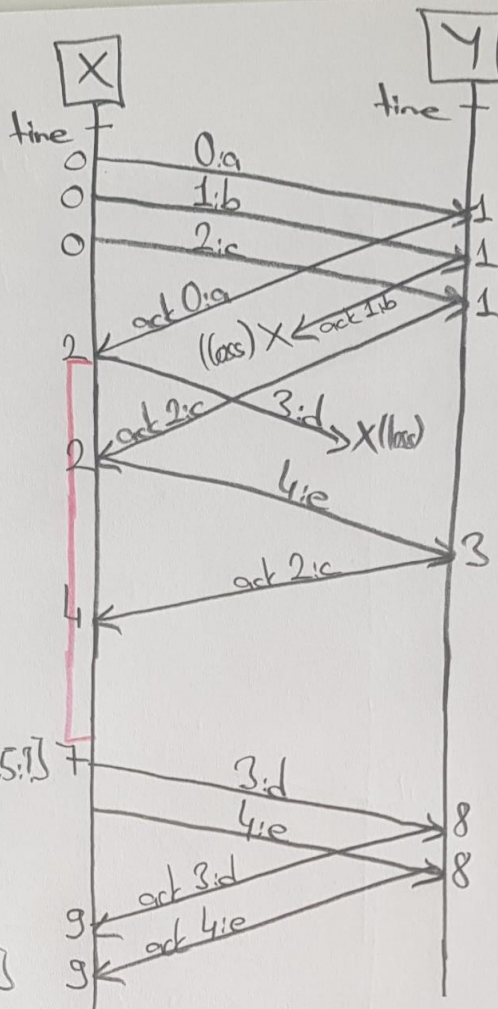 X Y
time time
0 0:a
0 1:b 1
0 2:c 1
1
ack 0:a
(loss) X ack 1:b
2
ack 2:c 3:d X(loss)
2
4:e
3
ack 2:c
4
5:?] 7
3:d
4:e 8
8
ack 3:d
9
ack 4:e
] 9